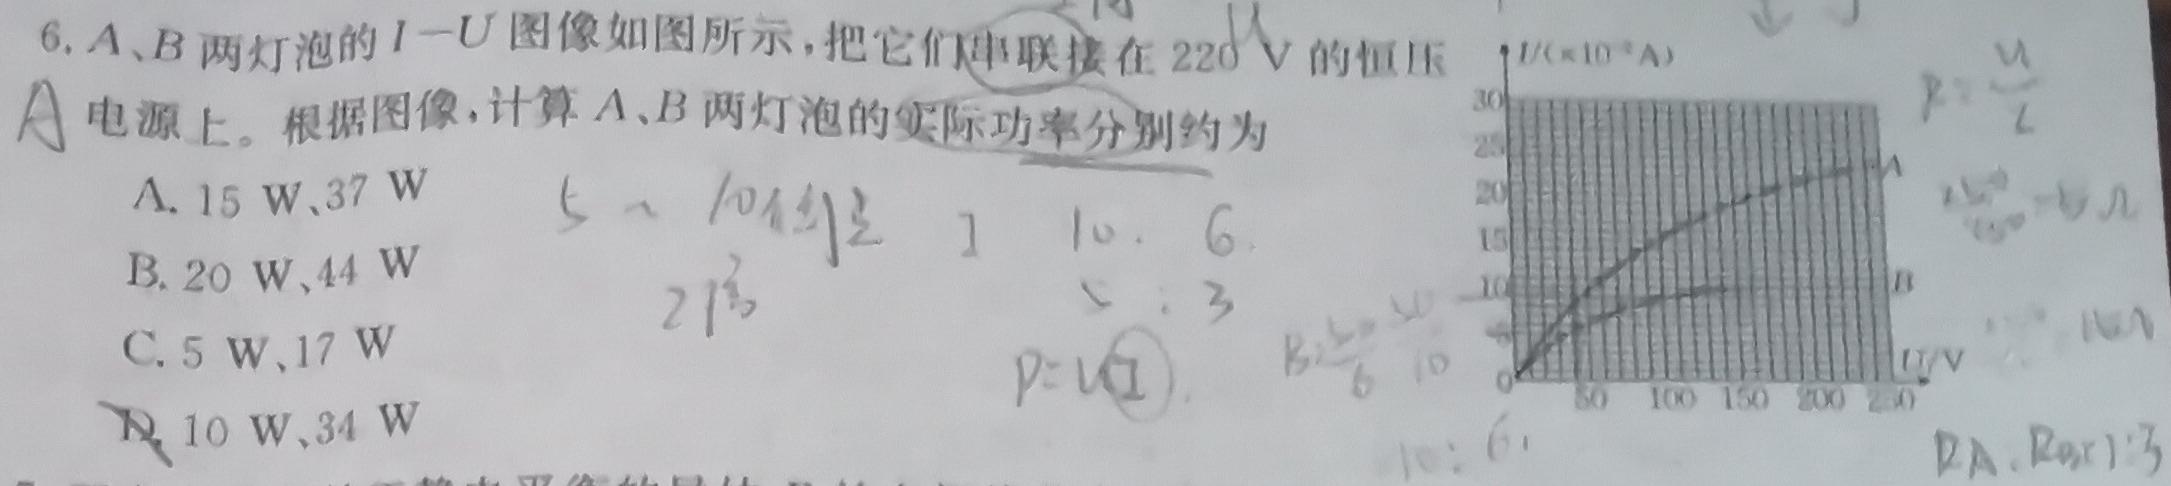 6. A、B 两灯泡的 I－U 图像如图所示,把它们串联接在 220 V 的恒压
A 电源上。根据图像,计算 A、B 两灯泡的实际功率分别约为
A. 15 W、37 W
B. 20 W、44 W
C. 5 W、17 W
D. 10 W、34 W
5 ~ 10
I 10. 6.
5 : 3
P=UI
I/(×10⁻²A)
30
25
20
15
10
5
0
50 100 150 200 250
U/V
A
B
R = U
I
B:
6 10
10: 6.